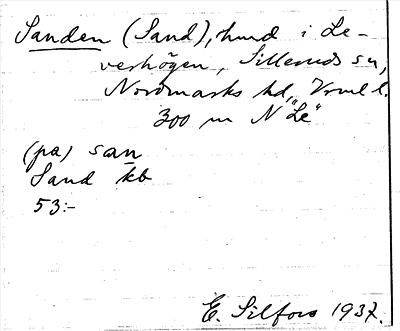 Sanden (Sand), hmd i Le-
verhögen, Silleruds sn,
Nordmarks hd, Vrml l.
300 m N "Le"
(pa) san
Sand kb
53:-
E. Silfors 1937.